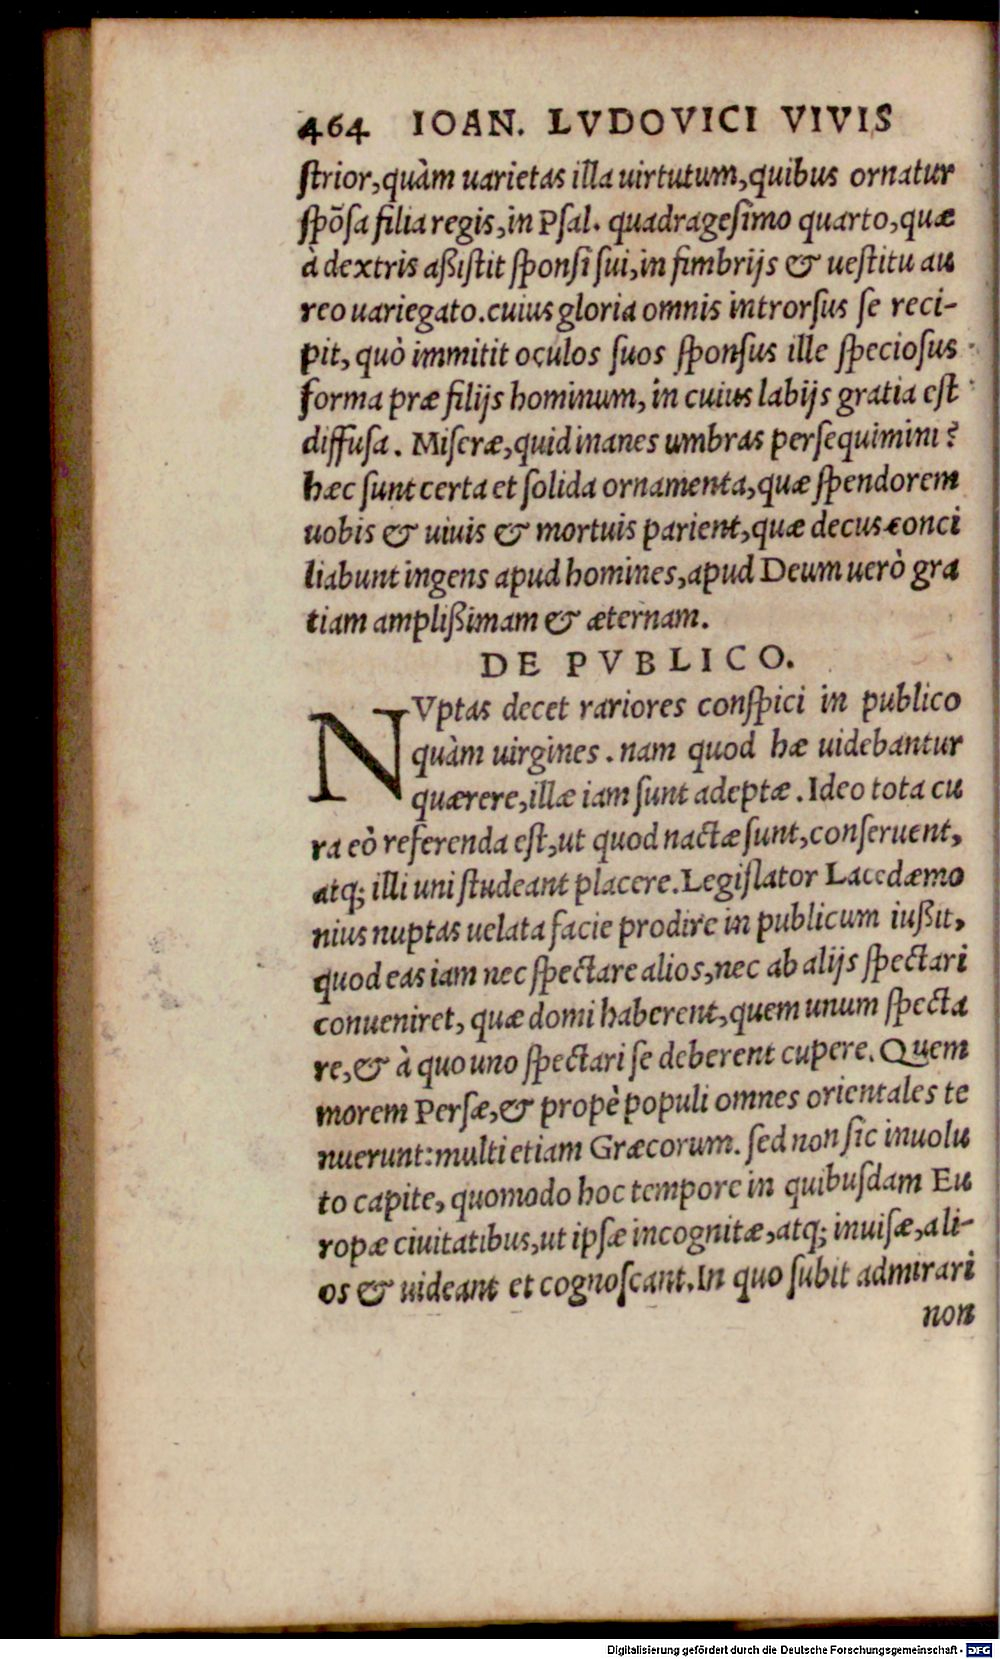 464 IOAN. LVDOVICI VIVIS
ſtrior, quàm uarietas illa uirtutum, quibus ornatur
ſpõſa filia regis, in Pſal. quadrageſimo quarto, quæ
à dextris aßiſtit ſponſi ſui, in fimbrijs & ueſtitu au
reo uariegato. cuius gloria omnis introrſus ſe reci-
pit, quò immitit oculos ſuos ſponſus ille ſpecioſus
forma præ filijs hominum, in cuius labijs gratia eſt
diffuſa. Miſeræ, quid inanes umbras perſequimini?
hæc ſunt certa et ſolida ornamenta, quæ ſpendorem
uobis & uiuis & mortuis parient, quæ decus conci
liabunt ingens apud homines, apud Deum uerò gra
tiam amplißimam & æternam.
DE PVBLICO.
NVptas decet rariores conſpici in publico
quàm uirgines. nam quod hæ uidebantur
quærere, illæ iam ſunt adeptæ. Ideo tota cu
ra eò referenda eſt, ut quod nactæ ſunt, conſeruent,
atq; illi uni ſtudeant placere. Legiſlator Lacedæmo
nius nuptas uelata facie prodire in publicum iußit,
quod eas iam nec ſpectare alios, nec ab alijs ſpectari
conueniret, quæ domi haberent, quem unum ſpecta
re, & à quo uno ſpectari ſe deberent cupere. Quem
morem Perſæ, & propè populi omnes orientales te
nuerunt: multi etiam Græcorum. ſed non ſic inuolu
to capite, quomodo hoc tempore in quibuſdam Eu
ropæ ciuitatibus, ut ipſæ incognitæ, atq; inuiſæ, ali-
os & uideant et cognoſcant. In quo ſubit admirari
non
Digitalisierung gefördert durch die Deutsche Forschungsgemeinschaft - DFG